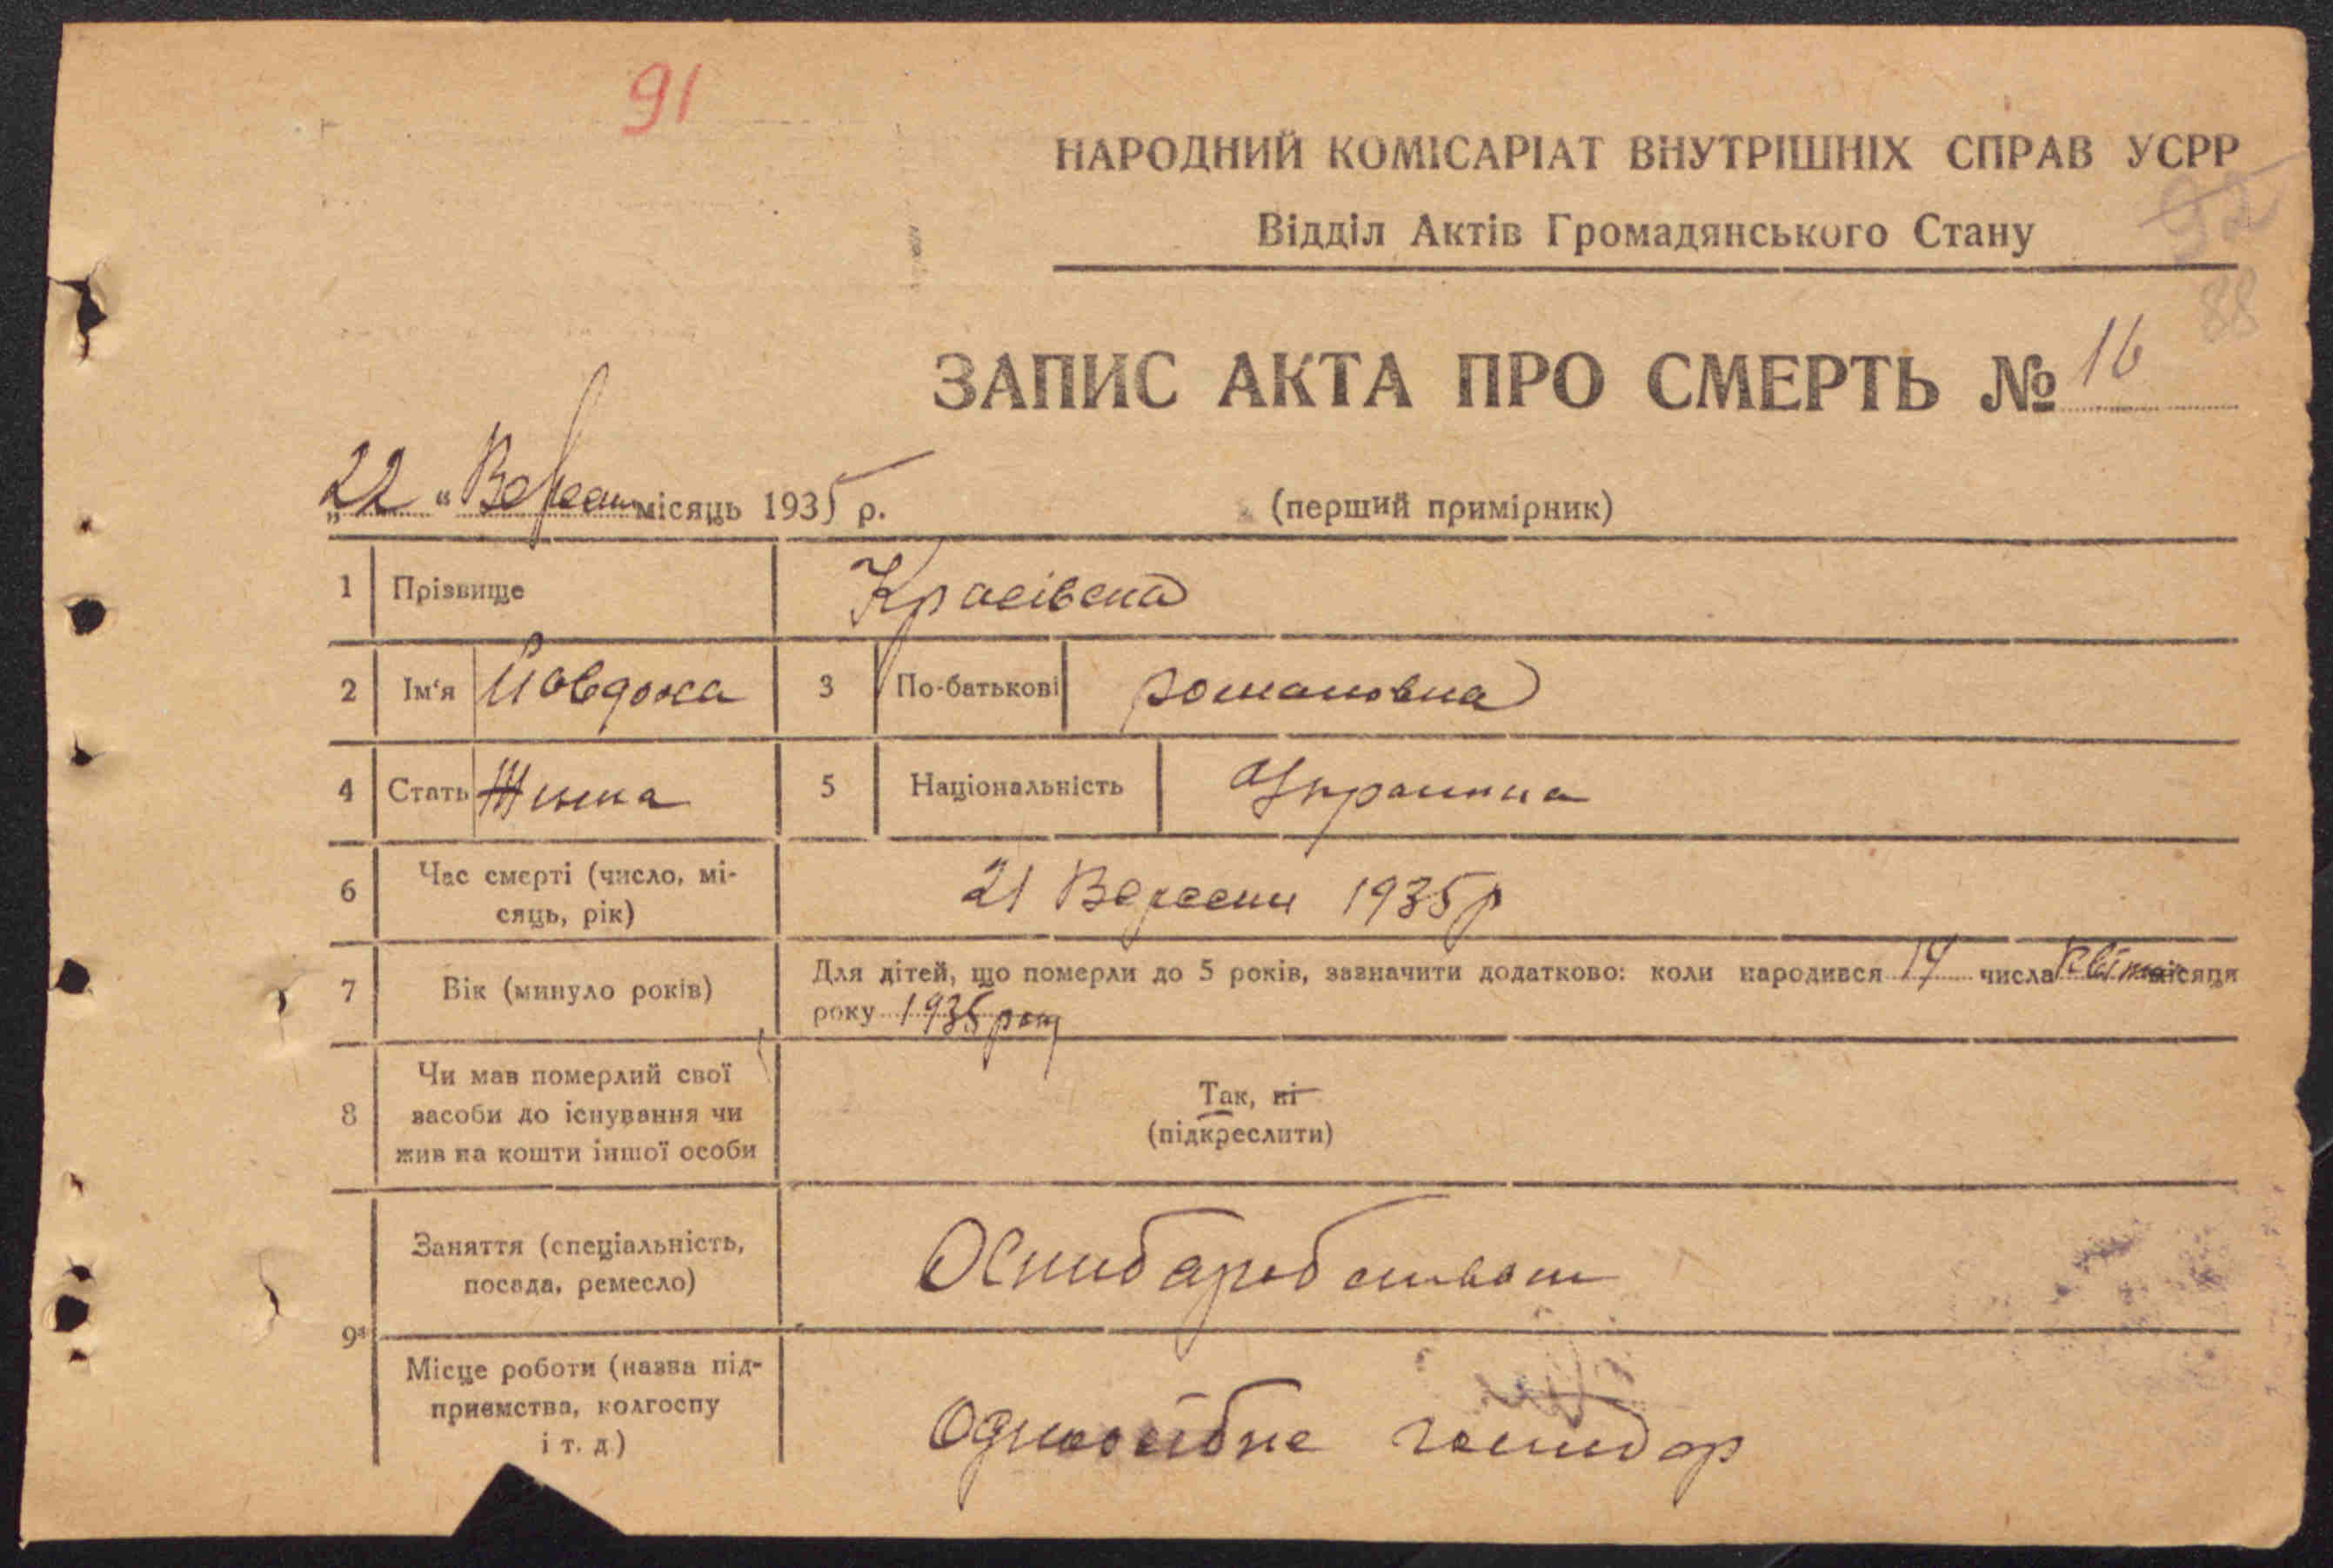 91
НАРОДНИЙ КОМІСАРІАТ ВНУТРІШНІХ СПРАВ УСРР
92
Відділ Актів Громадянського Стану
88
ЗАПИС АКТА ПРО СМЕРТЬ № 16
„22“ Вересни місяць 1935 р. (перший примірник)
1 Прізвище Красівска
2 Ім'я Йовдоха 3 По-батькові романовна
4 Стать Жинка 5 Національність Украинка
6 Час смерті (число, мі-
сяць, рік) 21 Вересни 1935 р
7 Вік (минуло років) Для дітей, що померли до 5 років, зазначити додатково: коли народився 14 числа Квітня місяця
року 1935 року
8 Чи мав померлий свої
засоби до існування чи
жив на кошти іншої особи
Так, ні
(підкреслити)
9 Заняття (спеціальність,
посада, ремесло)
Місце роботи (назва під-
приємства, колгоспу
і т. д.)
Одноосібне господар